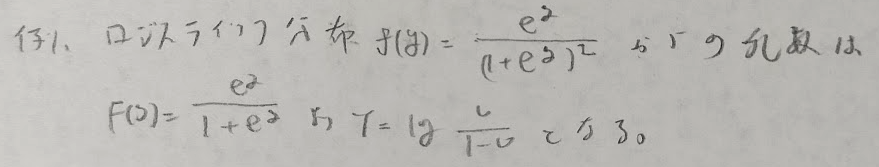 例1. ロジスティック分布 f(y) = e^y / (1+e^y)^2 からの乱数は
F(y) = e^y / (1+e^y) から Y = log U / (1-U) となる。